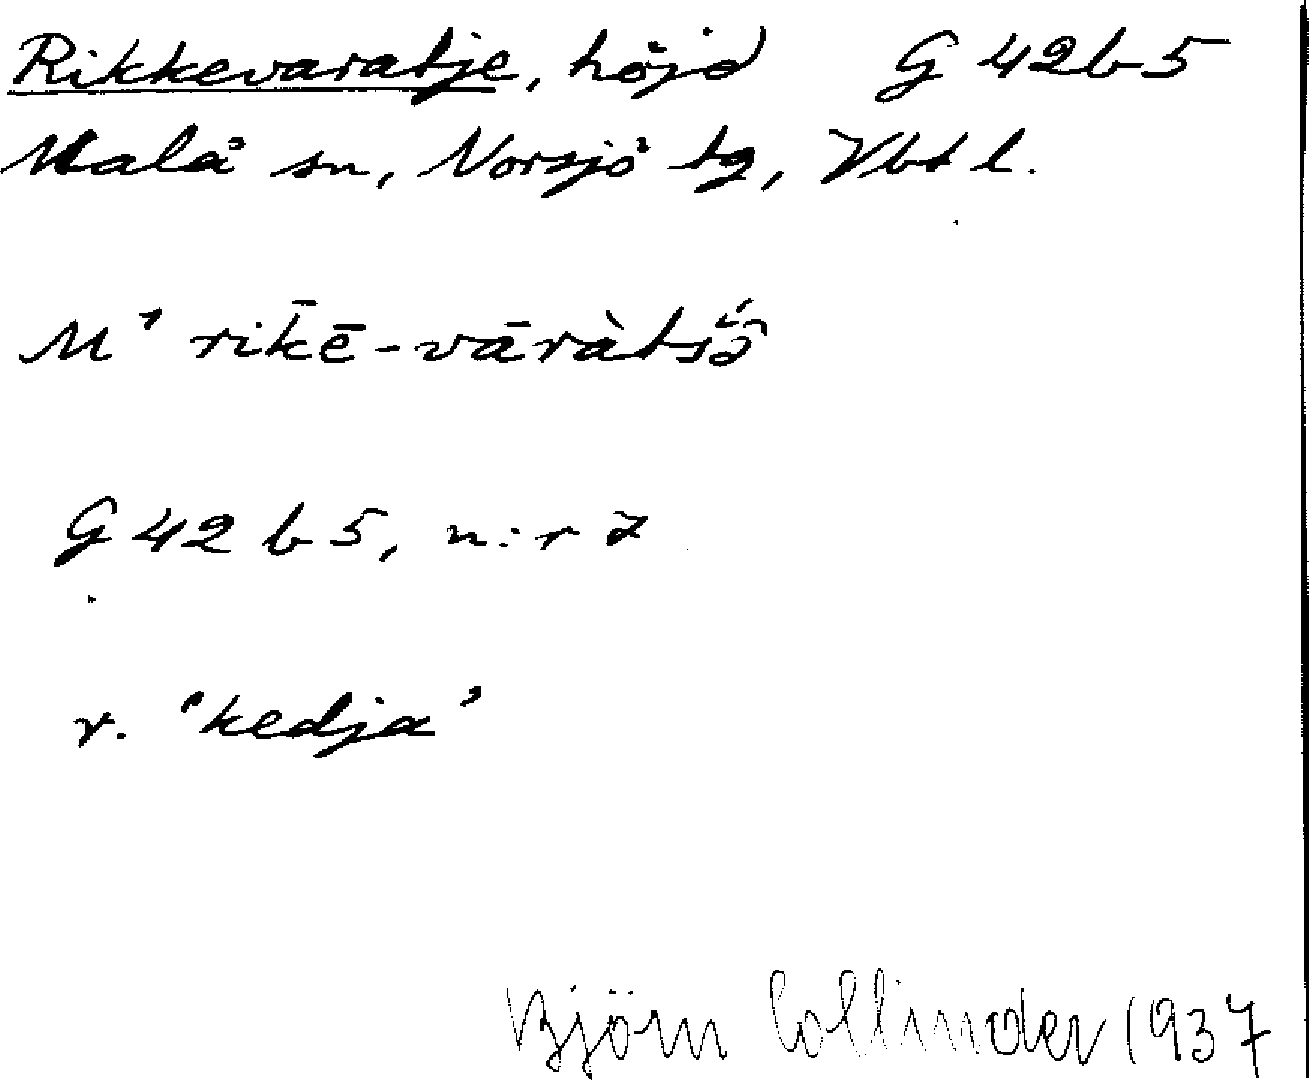 Rikkevaratje, höjd G 42b5
Malå sn, Norsjö tg, Vbtl.
M' rik̄ē-vāràtsɔ̋
G 42 b 5, n:r 7
r. 'kedja'
Björn Collinder 1937